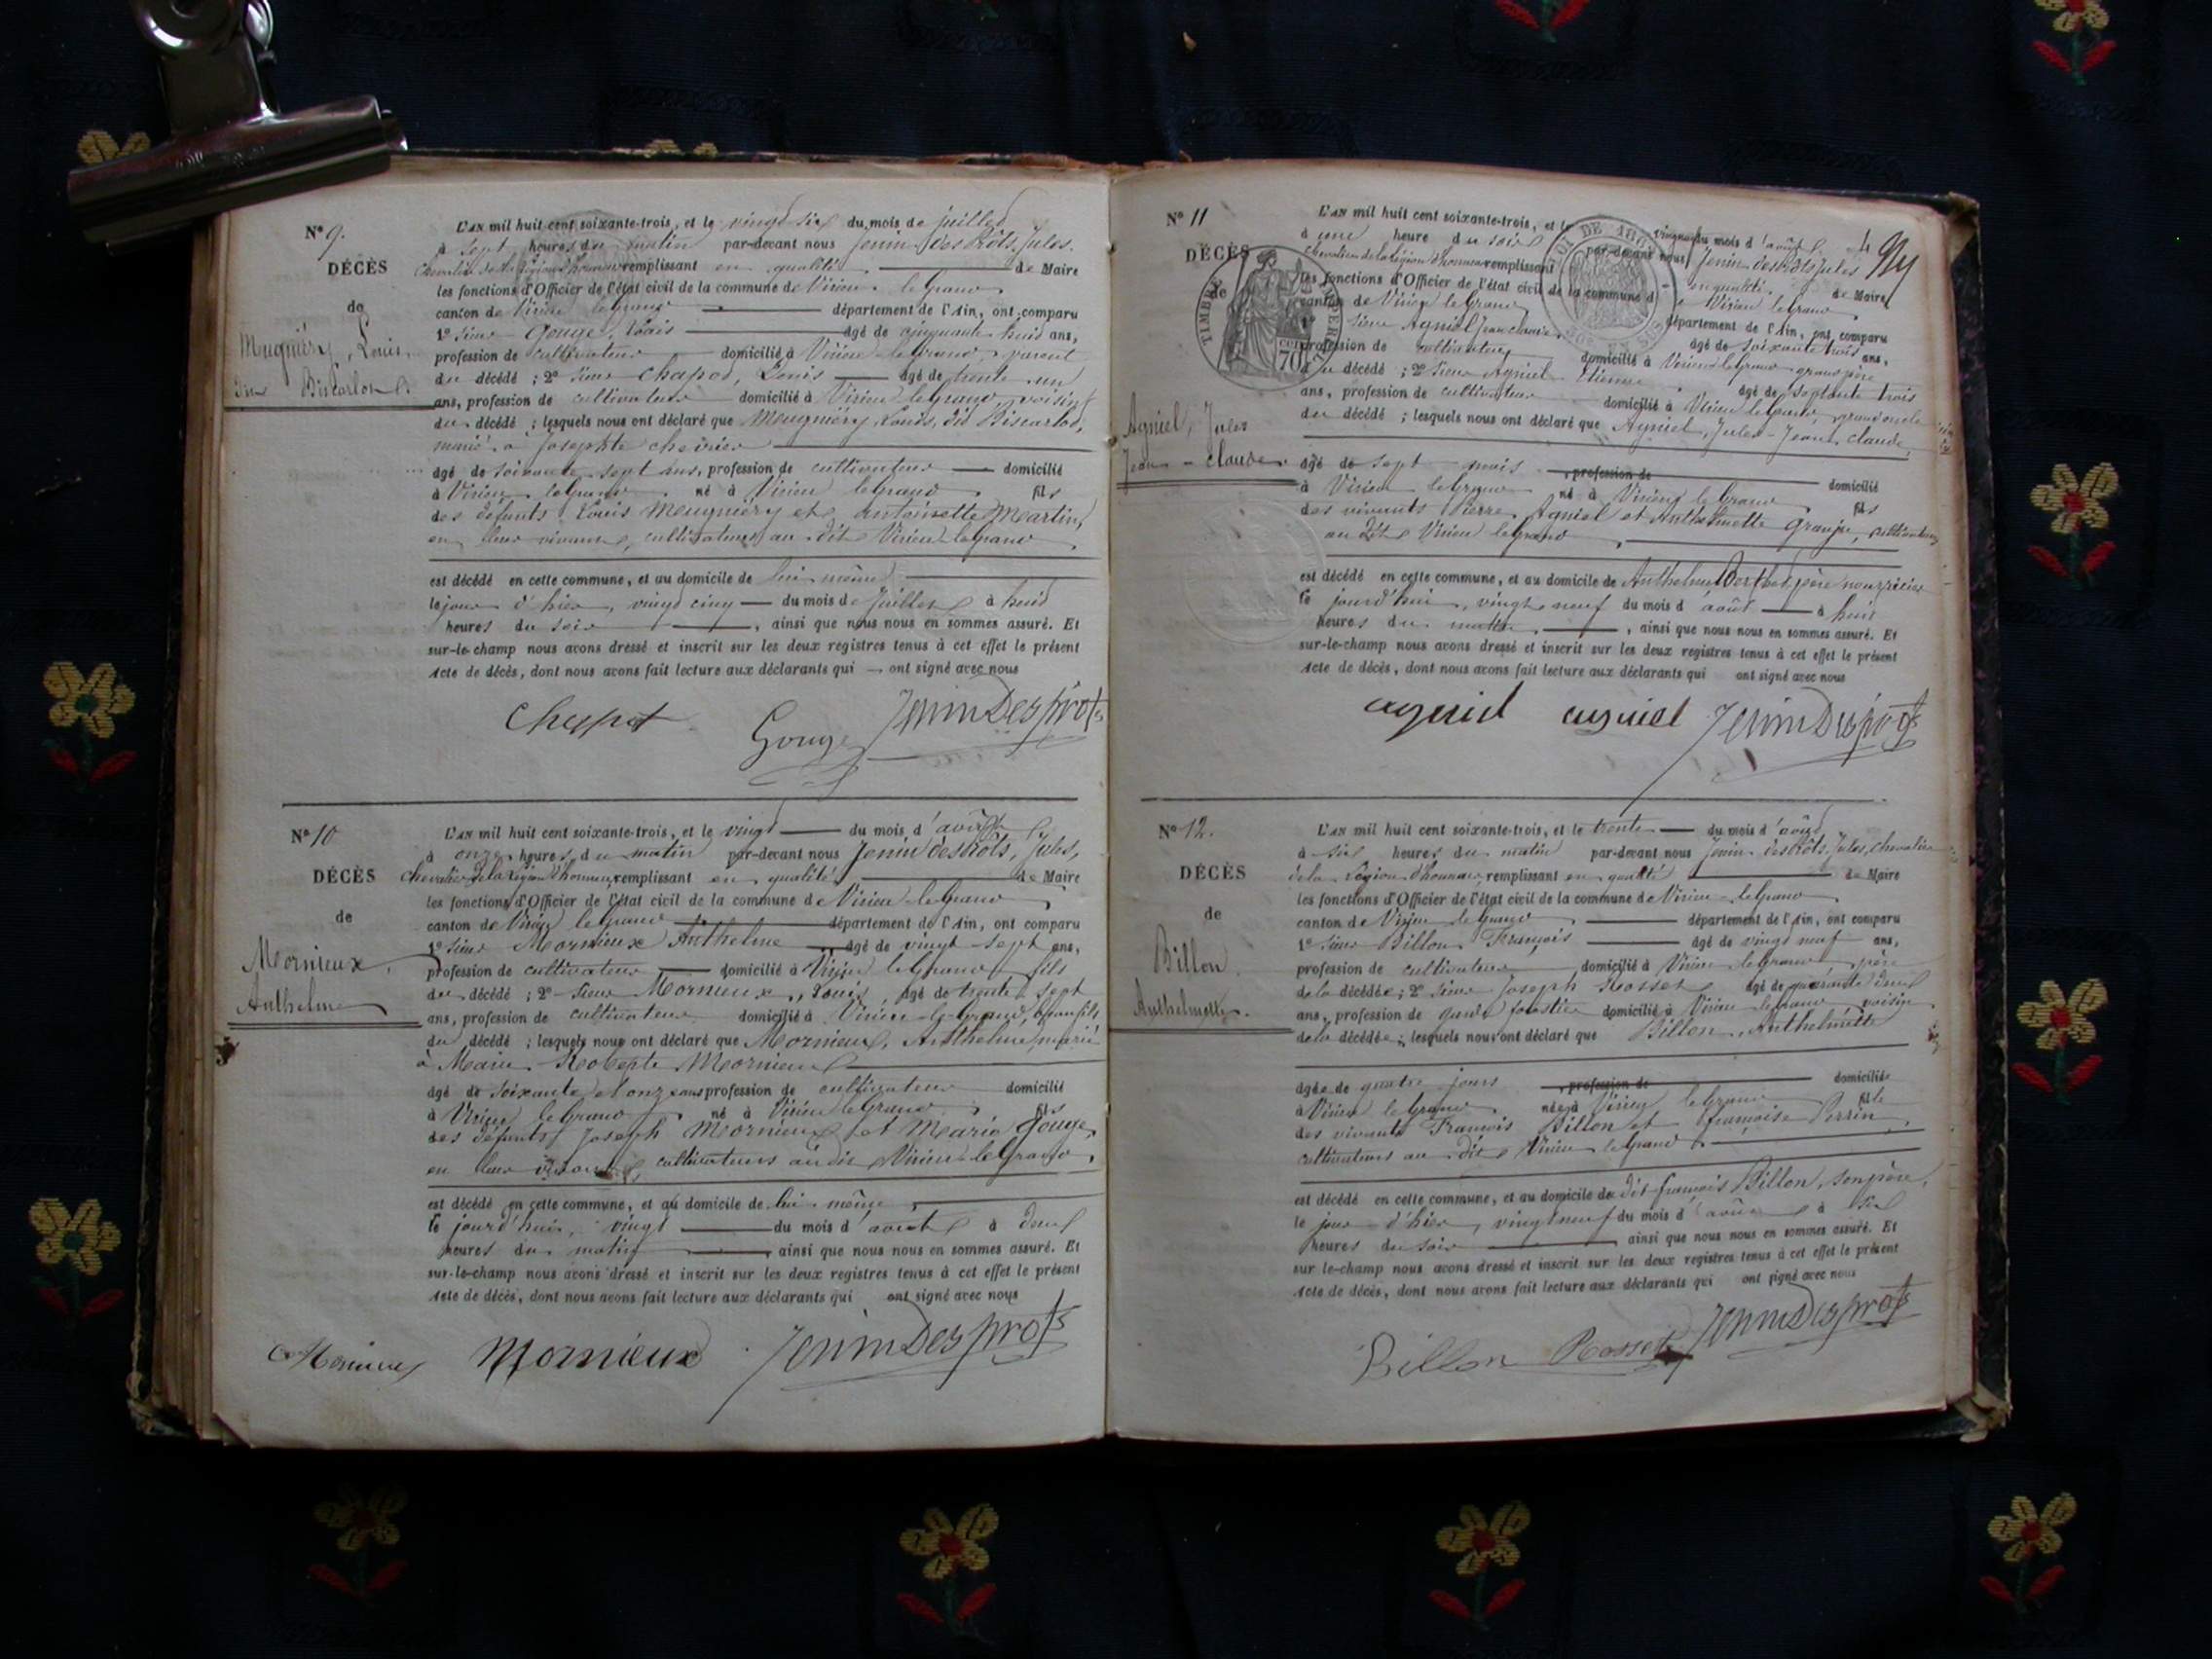 Nº 9.
DÉCÈS
de
Meugniéry, Louis
dit Biscarlod
L'AN mil huit cent soixante-trois, et le vingt six du mois de juillet
à sept heures du matin par-devant nous Jenin desprôts, Jules,
Chevalier de la légion d'honneur remplissant en qualité de Maire
les fonctions d'Officier de l'état civil de la commune de Virieu le Grand
canton de Virieu le Grand département de l'Ain, ont comparu
1º sieur Gouge, Louis âgé de cinquante huit ans,
profession de cultivateur domicilié à Virieu le Grand, parent
du décédé ; 2º sieur Chapot, Denis âgé de trente un
ans, profession de cultivateur domicilié à Virieu le Grand, voisin
du décédé ; lesquels nous ont déclaré que Meugniéry, Louis, dit Biscarlod,
marié à Josephte chevrier
âgé de soixante sept ans, profession de cultivateur domicilié
à Virieu le Grand né à Virieu le Grand fils
des défunts Louis Meugniéry et Antoinette Martin,
en leur vivant, cultivateurs au dit Virieu le Grand
est décédé en cette commune, et au domicile de lui-même
le jour d'hier, vingt cinq du mois de juillet à huit
heures du soir, ainsi que nous nous en sommes assuré. Et
sur-le-champ nous avons dressé et inscrit sur les deux registres tenus à cet effet le présent
acte de décès, dont nous avons fait lecture aux déclarants qui ont signé avec nous
Chappot Gouge JeninDesprots
Nº 10
DÉCÈS
de
Mornieux,
Anthelme
L'AN mil huit cent soixante-trois, et le vingt du mois d'août
à onze heures du matin par-devant nous Jenin desprôts, Jules,
Chevalier de la légion d'honneur, remplissant en qualité de Maire
les fonctions d'Officier de l'état civil de la commune de Virieu le Grand
canton de Virieu le Grand département de l'Ain, ont comparu
1º sieur Mornieux Anthelme âgé de vingt sept ans,
profession de cultivateur domicilié à Virieu le Grand fils
du décédé ; 2º sieur Mornieux, Louis, âgé de trente sept
ans, profession de cultivateur domicilié à Virieu-le-Grand, beau fils
du décédé ; lesquels nous ont déclaré que Mornieux, Anthelme, marié
à Marie Roberte Mornieux
âgé de soixante et onze ans profession de cultivateur domicilié
à Virieu le Grand né à Virieu le Grand fils
des défunts Joseph Mornieux et Marie Gouge,
en leur vivant cultivateurs au dit Virieu le Grand,
est décédé en cette commune, et au domicile de lui-même,
le jourd'hui, vingt du mois d'août à deux
heures du matin, ainsi que nous nous en sommes assuré. Et
sur-le-champ nous avons dressé et inscrit sur les deux registres tenus à cet effet le présent
acte de décès, dont nous avons fait lecture aux déclarants qui ont signé avec nous
Mornieux Mornieux JeninDesprots
Nº 11
DÉCÈS
de
Agniel, Jules
Jean-Claude.
TIMBRE IMPERIAL
70
L'AN mil huit cent soixante-trois, et le vingt neuf du mois d'août
à une heure du soir par-devant nous Jenin desprôts Jules
chevalier de la légion d'honneur remplissant en qualité de Maire
les fonctions d'Officier de l'état civil de la commune de Virieu le Grand
canton de Virieu le Grand département de l'Ain, ont comparu
1º sieur Agniel Jean claude âgé de soixante trois ans,
profession de cultivateur domicilié à Virieu le Grand grand père
du décédé ; 2º sieur Agniel Etienne âgé de septante trois
ans, profession de cultivateur domicilié à Virieu le Grand, grand oncle
du décédé ; lesquels nous ont déclaré que Agniel, Jules-Jean claude,
âgé de sept mois profession de domicilié
à Virieu le Grand né à Virieu le Grand fils
des vivants Pierre Agniel et Anthelmette Granjon, cultivateurs
au dit Virieu le Grand
est décédé en cette commune, et au domicile de Anthelme Berthet, père nourricier
le jourd'hui, vingt neuf du mois d'août à huit
heures du matin, ainsi que nous nous en sommes assuré. Et
sur-le-champ nous avons dressé et inscrit sur les deux registres tenus à cet effet le présent
acte de décès, dont nous avons fait lecture aux déclarants qui ont signé avec nous
agniel agniel JeninDesprots
Nº 12.
DÉCÈS
de
Billon
Anthelmette.
L'AN mil huit cent soixante-trois, et le trente du mois d'août
à six heures du matin par-devant nous Jenin desprôts, Jules, chevalier
de la légion d'honneur, remplissant en qualité de Maire
les fonctions d'Officier de l'état civil de la commune de Virieu-le-Grand
canton de Virieu le Grand département de l'Ain, ont comparu
1º sieur Billon François âgé de vingt neuf ans,
profession de cultivateur domicilié à Virieu le Grand père
de la décédée ; 2º sieur Joseph Rosset âgé de quarante deux
ans, profession de garde forestier domicilié à Virieu le Grand voisin
de la décédée ; lesquels nous ont déclaré que Billon, Anthelmette
âgée de quatre jours profession de domiciliée
à Virieu le Grand née à Virieu le Grand fille
des vivants François Billon et Françoise Perrin
cultivateurs au dit Virieu le Grand
est décédé en cette commune, et au domicile de dit françois Billon, son père,
le jour d'hier, vingt neuf du mois d'août à six
heures du soir, ainsi que nous nous en sommes assuré. Et
sur le-champ nous avons dressé et inscrit sur les deux registres tenus à cet effet le présent
acte de décès, dont nous avons fait lecture aux déclarants qui ont signé avec nous
Billon Rosset JeninDesprots